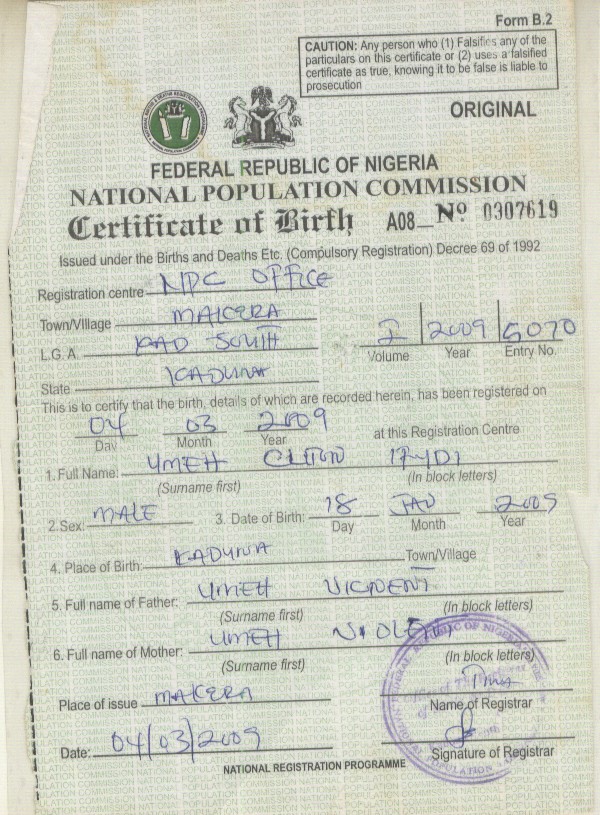 Form B.2
CAUTION: Any person who (1) Falsifies any of the
particulars on this certificate or (2) uses a falsified
certificate as true, knowing it to be false is liable to
prosecution
ORIGINAL
FEDERAL REPUBLIC OF NIGERIA
NATIONAL POPULATION COMMISSION
Certificate of Birth A08 Nº 0307619
Issued under the Births and Deaths Etc. (Compulsory Registration) Decree 69 of 1992
Registration centre NPC OFFICE
Town/Village MAKERA
L.G.A. KAD SOUTH I 2009 5070
Volume Year Entry No.
State KADUNA
This is to certify that the birth, details of which are recorded herein, has been registered on
04 03 2009 at this Registration Centre
Day Month Year
1. Full Name: UMEH
(Surname first) (In block letters)
2. Sex: MALE 3. Date of Birth: 18 JAN
Day Month Year
4. Place of Birth: KADUNA Town/Village
5. Full name of Father: UMEH
(Surname first) (In block letters)
6. Full name of Mother: UMEH
(Surname first) (In block letters)
Place of issue MAKERA
Name of Registrar
Date: 04/03/2009
Signature of Registrar
NATIONAL REGISTRATION PROGRAMME